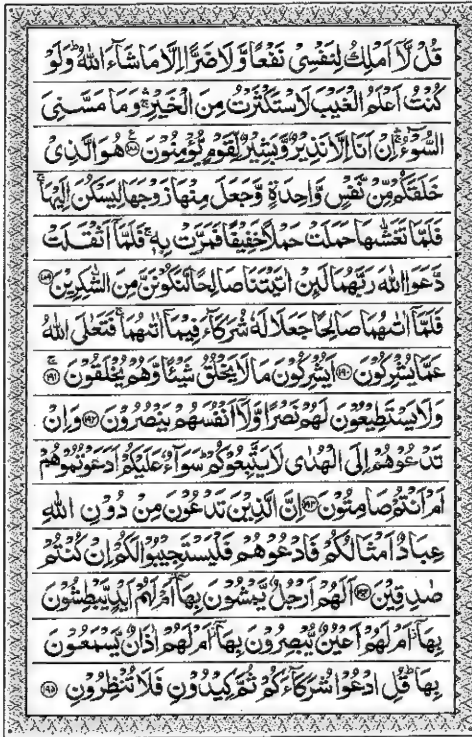 قُلْ لَّاۤ اَمْلِكُ لِنَفْسِیْ نَفْعًا وَّلَا ضَرًّا اِلَّا مَا شَآءَ اللّٰهُ ؕ وَلَوْ
كُنْتُ اَعْلَمُ الْغَیْبَ لَاسْتَكْثَرْتُ مِنَ الْخَیْرِ ۛۚ وَمَا مَسَّنِیَ
السُّوْٓءُ ۛۚ اِنْ اَنَا اِلَّا نَذِیْرٌ وَّبَشِیْرٌ لِّقَوْمٍ یُّؤْمِنُوْنَ ﴿۱۸۸﴾ هُوَ الَّذِیْ
خَلَقَكُمْ مِّنْ نَّفْسٍ وَّاحِدَةٍ وَّجَعَلَ مِنْهَا زَوْجَهَا لِیَسْكُنَ اِلَیْهَا ۚ
فَلَمَّا تَغَشّٰىهَا حَمَلَتْ حَمْلًا خَفِیْفًا فَمَرَّتْ بِهٖ ۚ فَلَمَّاۤ اَثْقَلَتْ
دَّعَوَا اللّٰهَ رَبَّهُمَا لَئِنْ اٰتَیْتَنَا صَالِحًا لَّنَكُوْنَنَّ مِنَ الشّٰكِرِیْنَ ﴿۱۸۹﴾
فَلَمَّاۤ اٰتٰىهُمَا صَالِحًا جَعَلَا لَهٗ شُرَكَآءَ فِیْمَاۤ اٰتٰىهُمَا ۚ فَتَعٰلَی اللّٰهُ
عَمَّا یُشْرِكُوْنَ ﴿۱۹۰﴾ اَیُشْرِكُوْنَ مَا لَا یَخْلُقُ شَیْـًٔا وَّهُمْ یُخْلَقُوْنَ ﴿۱۹۱﴾
وَلَا یَسْتَطِیْعُوْنَ لَهُمْ نَصْرًا وَّلَاۤ اَنْفُسَهُمْ یَنْصُرُوْنَ ﴿۱۹۲﴾ وَاِنْ
تَدْعُوْهُمْ اِلَی الْهُدٰی لَا یَتَّبِعُوْكُمْ ؕ سَوَآءٌ عَلَیْكُمْ اَدَعَوْتُمُوْهُمْ
اَمْ اَنْتُمْ صَامِتُوْنَ ﴿۱۹۳﴾ اِنَّ الَّذِیْنَ تَدْعُوْنَ مِنْ دُوْنِ اللّٰهِ
عِبَادٌ اَمْثَالُكُمْ فَادْعُوْهُمْ فَلْیَسْتَجِیْبُوْا لَكُمْ اِنْ كُنْتُمْ
صٰدِقِیْنَ ﴿۱۹۴﴾ اَلَهُمْ اَرْجُلٌ یَّمْشُوْنَ بِهَاۤ ؗ اَمْ لَهُمْ اَیْدٍ یَّبْطِشُوْنَ
بِهَاۤ ؗ اَمْ لَهُمْ اَعْیُنٌ یُّبْصِرُوْنَ بِهَاۤ ؗ اَمْ لَهُمْ اٰذَانٌ یَّسْمَعُوْنَ
بِهَا ؕ قُلِ ادْعُوْا شُرَكَآءَكُمْ ثُمَّ كِیْدُوْنِ فَلَا تُنْظِرُوْنِ ﴿۱۹۵﴾